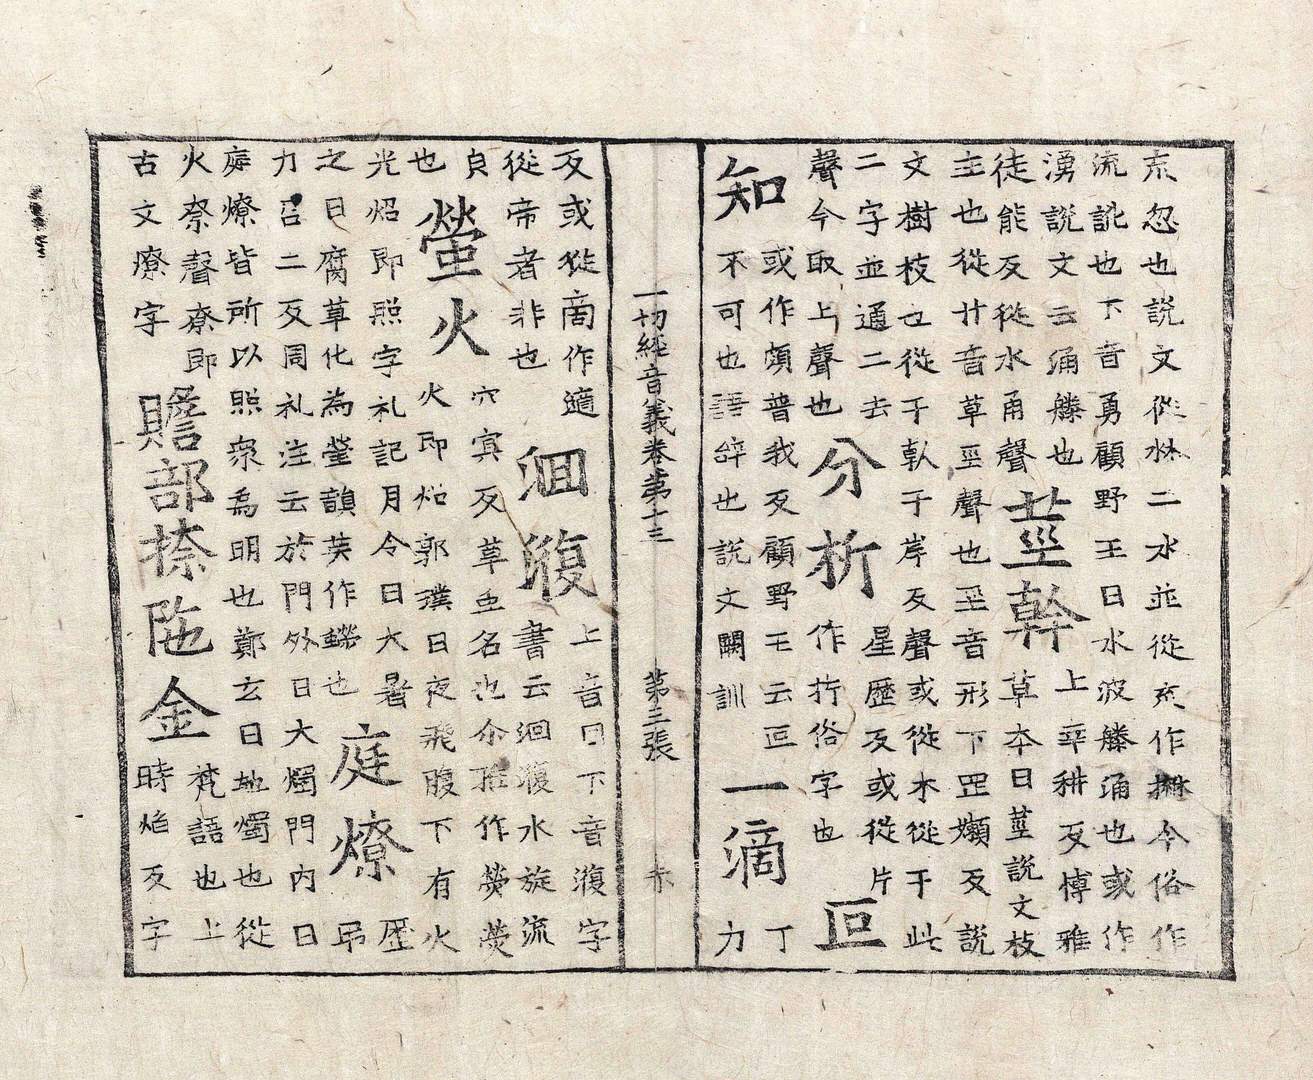 㐬忽也說文從沝二水並從㐬作㩅今俗作
流訛也下音勇顧野王曰水波滕涌也或作
湧說文云涌滕也
徒能反從水甬聲
莖幹
上幸耕反博雅
草本曰莖說文枝
主也從廿音草巠聲也巠音形下罡嬾反說
文樹枝也從干倝于岸反聲或從木從干此
二字並通二去
聲今取上聲也
分析
星歷反或從片
作㭊俗字也
叵
知
或作頗普我反顧野王云叵
不可也語辝也說文闕訓
一滴
丁
力
一切經音義卷第十三 第三張 赤
反或從啇作適
從帝者非也
洄澓
上音回下音澓字
書云洄澓水旋流
皃
也
螢火
穴㝠反草虫名也尒雅作熒熒
火即炤郭璞曰夜飛腹下有火
光炤即照字礼記月令曰大暑
之日腐草化為螢韻英作䗿也
庭燎
歷
弔
力召二反周礼注云於門外曰大燭門內曰
庭燎皆所以照衆為明也鄭玄曰地燭也從
火尞聲尞即
古文燎字
贍部捺陁金
梵語也上
時焰反字